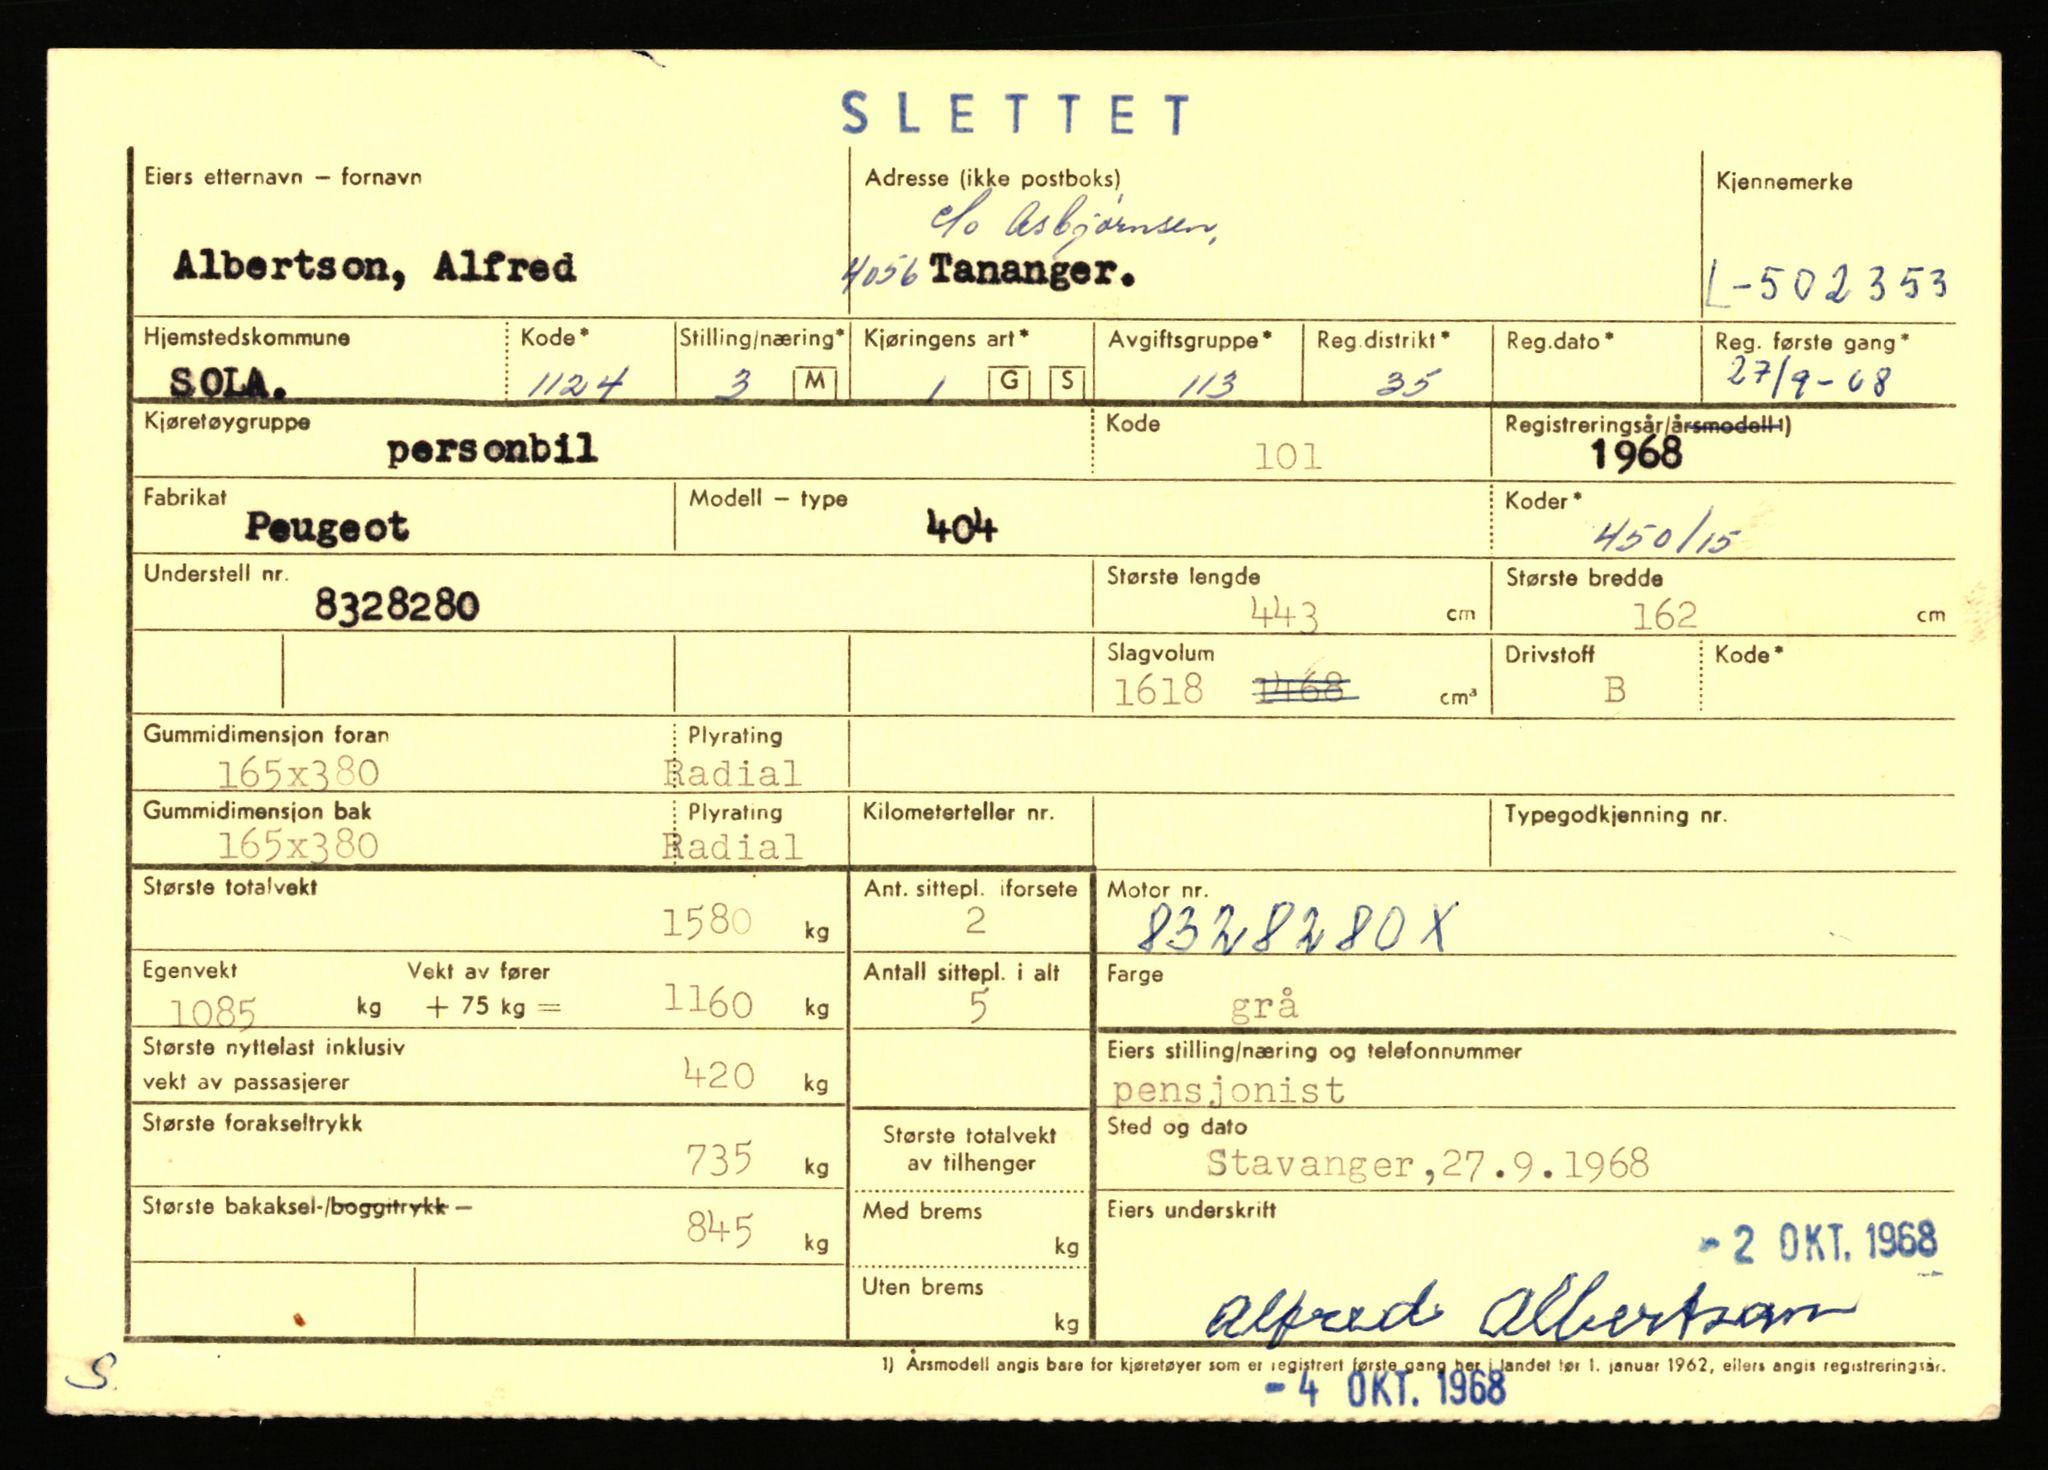 SLETTET
Eiers etternavn – fornavn
Adresse (ikke postboks)
Kjennemerke
c/o Asbjørnsen,
Albertson, Alfred
4056 Tananger.
L-502353
Hjemstedskommune
Kode*
Stilling/næring*
Kjøringens art*
Avgiftsgruppe*
Reg.distrikt*
Reg.dato*
Reg. første gang*
SOLA.
1124
3 M
1 G S
113
35
27/9-68
Kjøretøygruppe
Kode
Registreringsår/årsmodell 1)
personbil
101
1968
Fabrikat
Modell – type
Koder*
Peugeot
404
450/15
Understell nr.
Største lengde
Største bredde
8328280
443 cm
162 cm
Slagvolum
Drivstoff
Kode*
1618 1468 cm³
B
Gummidimensjon foran
Plyrating
165x380
Radial
Gummidimensjon bak
Plyrating
Kilometerteller nr.
Typegodkjenning nr.
165x380
Radial
Største totalvekt
Ant. sittepl. iforsete
Motor nr.
1580 kg
2
8328280X
Egenvekt
Vekt av fører
Antall sittepl. i alt
Farge
1085 kg + 75 kg = 1160 kg
5
grå
Største nyttelast inklusiv
vekt av passasjerer
420 kg
Eiers stilling/næring og telefonnummer
pensjonist
Største forakseltrykk
735 kg
Største totalvekt
av tilhenger
Sted og dato
Stavanger,27.9.1968
Største bakaksel-/boggitrykk –
845 kg
Med brems
kg
Eiers underskrift
- 2 OKT. 1968
Uten brems
kg
Alfred Albertson
S.
1) Årsmodell angis bare for kjøretøyer som er registrert første gang her i landet før 1. januar 1962, ellers angis registreringsår.
- 4 OKT. 1968